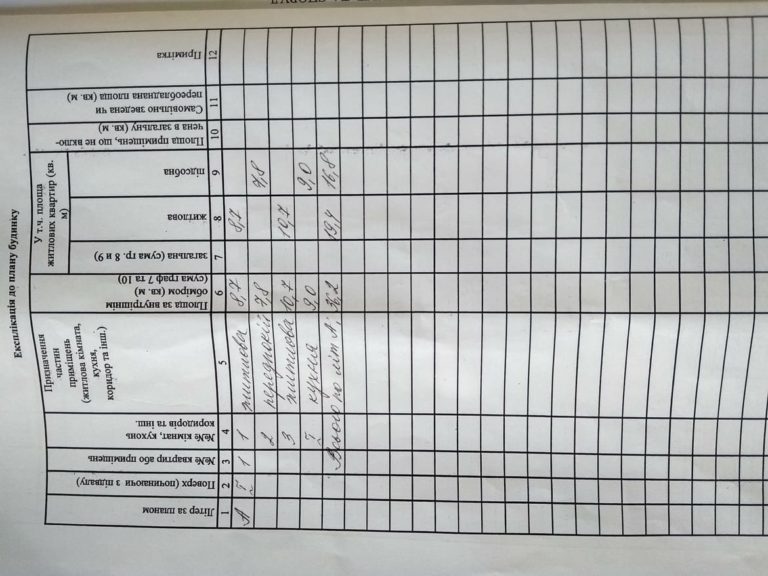 Експлікація до плану будинку
Літер за планом
Поверх (починаючи з підвалу)
№№ квартир або приміщень
№№ кімнат, кухонь коридорів та інш.
Призначення частин приміщень (житлова кімната, кухня, коридор та інш.)
Площа за внутрішнім обміром (кв. м) (сума граф 7 та 10)
У т.ч. площа житлових квартир (кв. м)
загальна (сума гр. 8 и 9)
житлова
підсобна
Площа приміщень, що не вклю-чена в загальну (кв. м)
Самовільно зведена чи переобладнана площа (кв. м)
Примітка
1 2 3 4 5 6 7 8 9 10 11 12
А I 1 1 житлова 8,7 8,7
2 передпокій 7,8 7,8
3 житлова 10,7 10,7
I кухня 9,0 9,0
Всього по літ А; 36,2 19,4 16,8